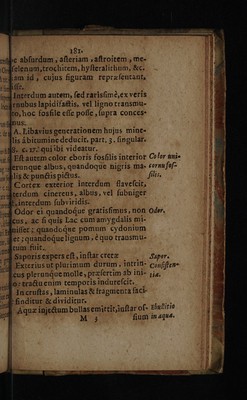 181.
absurdum, asteriam, astroitem, me-
selenum, trochitem, hysteralithum, &c.
am id, cujus figuram repræsentant,
Interdum autem, sed rarissimè, ex veris
lapidifactis, vel ligno transmu-
hoc fossile esse posse, supra conces-
A. Libavius generationem hujus mine-
lis à bitumine deducit. part. 3. singular.
qui ibi videatur.
Est autem color eboris fossilis interior
erunque albus, quandoque nigris ma-
lis & punctis pictus.
Color uni-
cornu fos-
silis.
Cortex exterior interdum flavescit,
terdum cinereus, albus, vel subniger
interdum subviridis.
Odor ei quandoque gratissimus, non
Odor.
cus, ac si quis lac cum amygdalis mi-
; quandoque pomum cydonium
er; quandoque lignum, è quo transmu-
tum fuit.
Saporis expers est, instar cretæ
Sapor.
Exterius ut plurimum durum, intrin-
cus plerunque molle, præsertim ab ini-
tractu enim temporis indurescit.
Consisten-
tia.
In crustas, laminulas & fragmenta faci-
finditur & dividitur.
Aquæ injectum bullas emittit, instar os-
Ebullitio
in aqua.
M 3
sium